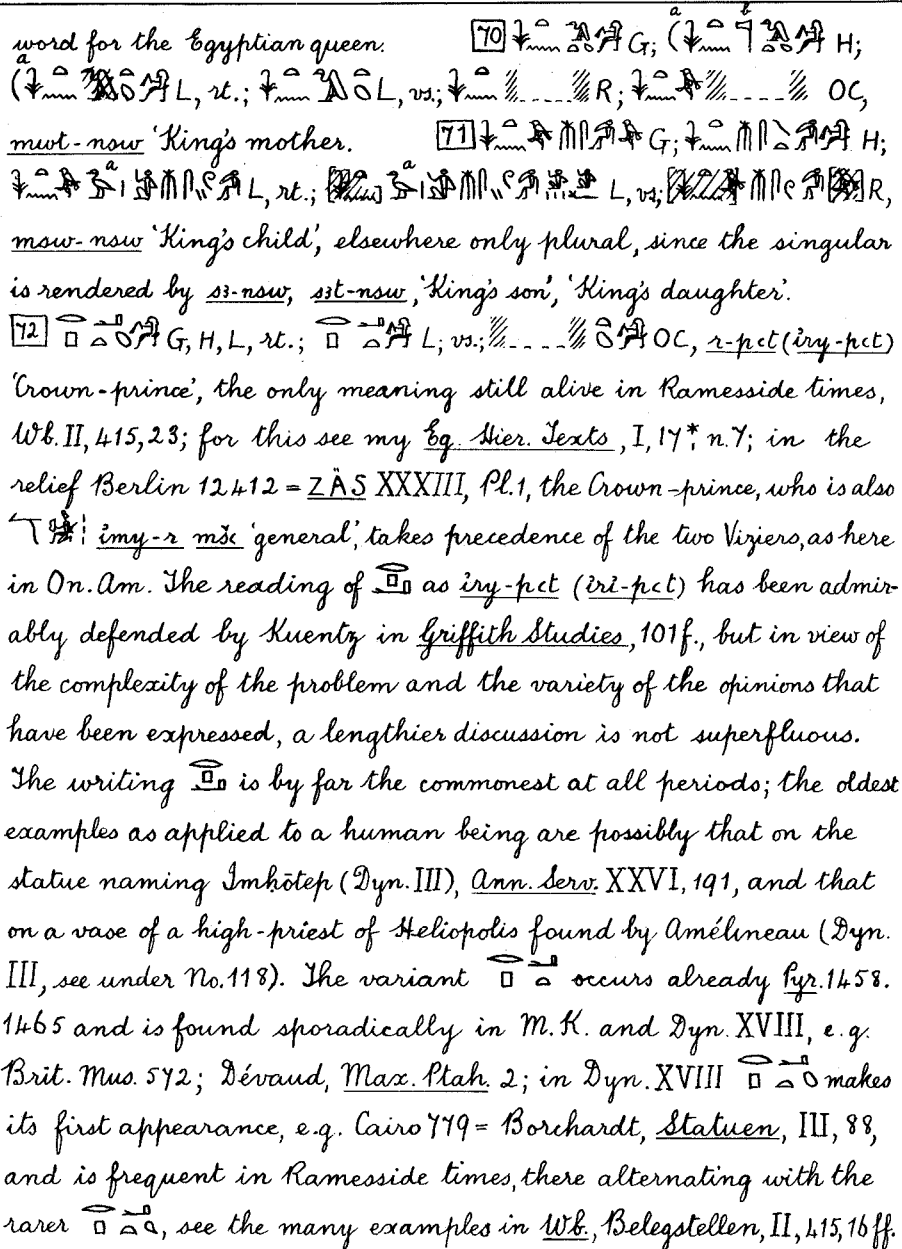 word for the Egyptian queen. 70 G; (H;
(L, rt.; L, vs.; R; OC,
mwt-nsw 'King's mother. 71 G; H;
L, rt.; L, vs; R,
msw-nsw 'King's child', elsewhere only plural, since the singular
is rendered by sꜣ-nsw, sꜣt-nsw, 'King's son', 'King's daughter'.
72 G, H, L, rt.; L; vs.; OC, r-pꜥt (iry-pꜥt)
'Crown-prince', the only meaning still alive in Ramesside times,
Wb. II, 415, 23; for this see my Eg. Hier. Texts, I, 17*, n.7; in the
relief Berlin 12412 = ZÄS XXXIII, Pl.1, the Crown-prince, who is also
imy-r mšꜥ 'general', takes precedence of the two Viziers, as here
in On. Am. The reading of as iry-pꜥt (iri-pꜥt) has been admir-
ably defended by Kuentz in Griffith Studies, 101f., but in view of
the complexity of the problem and the variety of the opinions that
have been expressed, a lengthier discussion is not superfluous.
The writing is by far the commonest at all periods; the oldest
examples as applied to a human being are possibly that on the
statue naming Imhōtep (Dyn. III), Ann. Serv. XXVI, 191, and that
on a vase of a high-priest of Heliopolis found by Amélineau (Dyn.
III, see under No. 118). The variant occurs already Pyr. 1458.
1465 and is found sporadically in M.K. and Dyn. XVIII, e.g.
Brit. Mus. 572; Dévaud, Max. Ptah. 2; in Dyn. XVIII makes
its first appearance, e.g. Cairo 779 = Borchardt, Statuen, III, 88,
and is frequent in Ramesside times, there alternating with the
rarer , see the many examples in Wb., Belegstellen, II, 415, 16 ff.